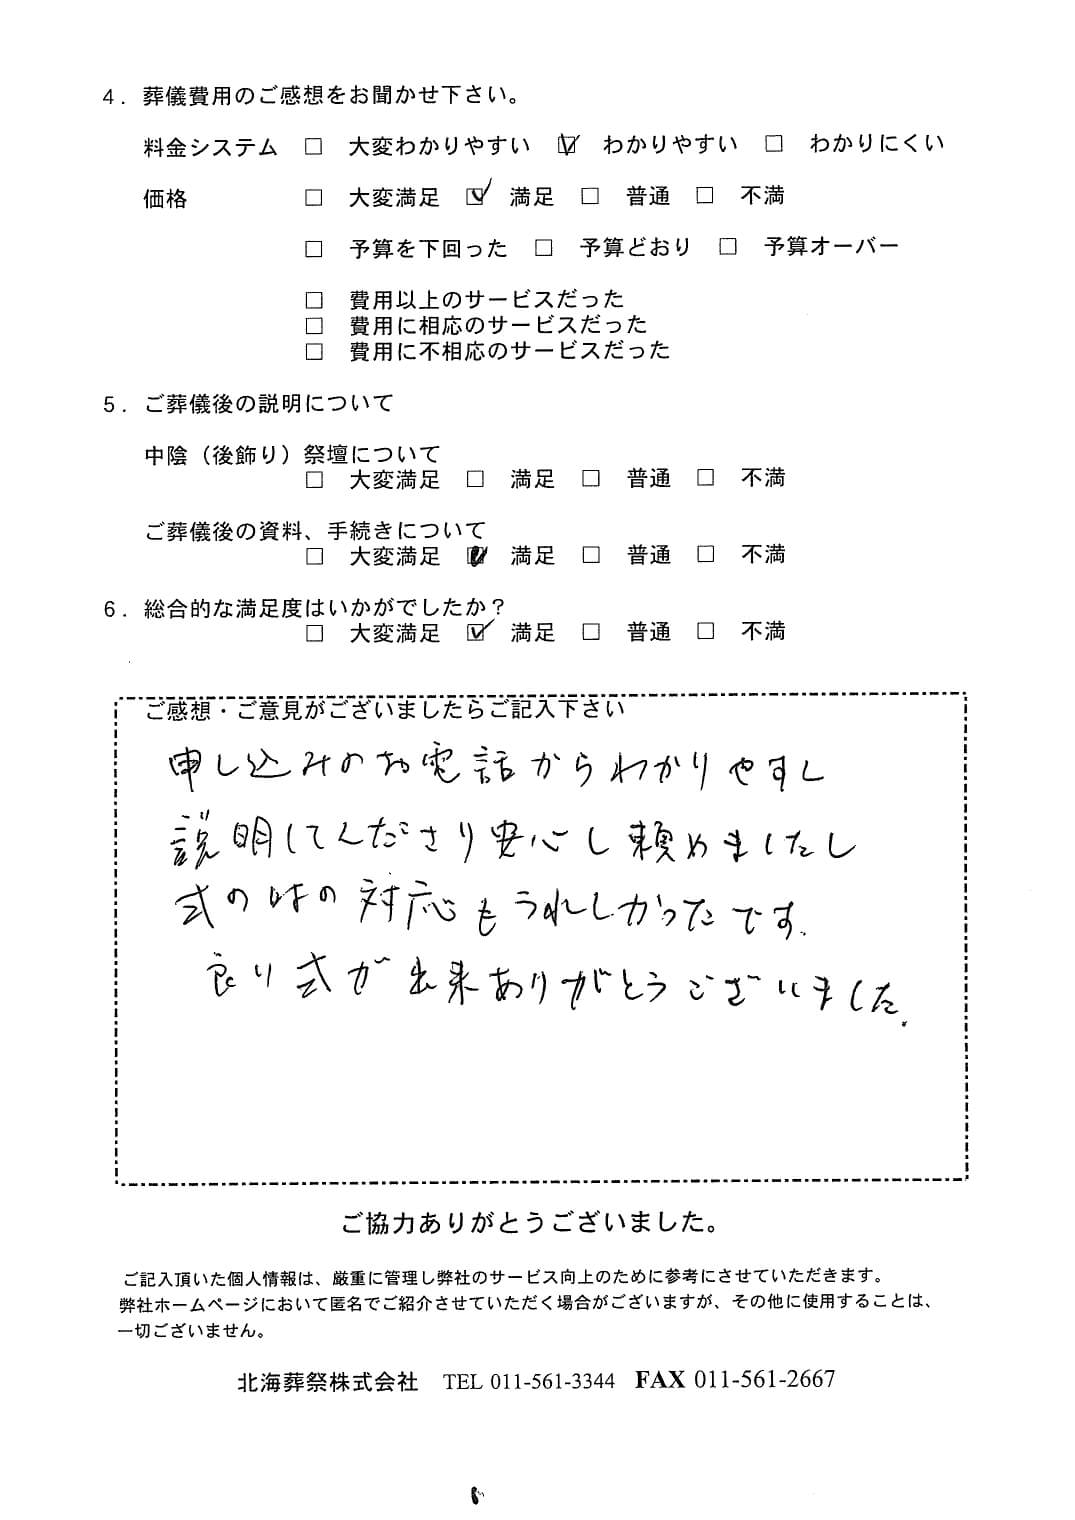 4．葬儀費用のご感想をお聞かせ下さい。
料金システム □ 大変わかりやすい ☑ わかりやすい □ わかりにくい
価格 □ 大変満足 ☑ 満足 □ 普通 □ 不満
□ 予算を下回った □ 予算どおり □ 予算オーバー
□ 費用以上のサービスだった
□ 費用に相応のサービスだった
□ 費用に不相応のサービスだった
5．ご葬儀後の説明について
中陰（後飾り）祭壇について
□ 大変満足 □ 満足 □ 普通 □ 不満
ご葬儀後の資料、手続きについて
□ 大変満足 ☑ 満足 □ 普通 □ 不満
6．総合的な満足度はいかがでしたか？
□ 大変満足 ☑ 満足 □ 普通 □ 不満
ご感想・ご意見がございましたらご記入下さい
申し込みのお電話からわかりやすし
説明してくださり安心し頼めましたし
式の時の対応もうれしかったです。
良い式が出来ありがとうございました。
ご協力ありがとうございました。
ご記入頂いた個人情報は、厳重に管理し弊社のサービス向上のために参考にさせていただきます。
弊社ホームページにおいて匿名でご紹介させていただく場合がございますが、その他に使用することは、
一切ございません。
北海葬祭株式会社 TEL 011-561-3344 FAX 011-561-2667